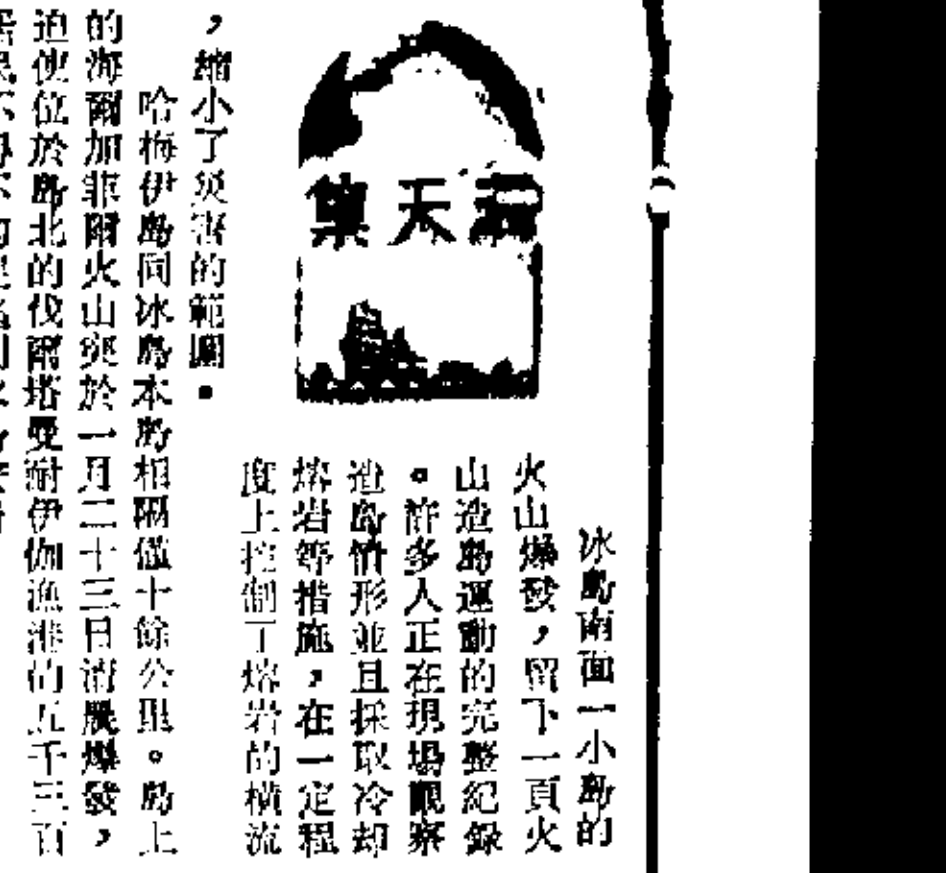 天集
冰島南面一小島的
火山爆發，留下一頁火
山造島運動的完整紀錄
。許多人正在現場觀察
造島情形並且採取冷却
熔岩等措施，在一定程
度上控制了熔岩的橫流
，縮小了災害的範圍。
哈梅伊島同冰島本島相隔僅十餘公里。島上
的海爾加菲爾火山突於一月二十三日清晨爆發，
迫使位於島北的伐爾塔曼耐伊伽漁港的五千三百